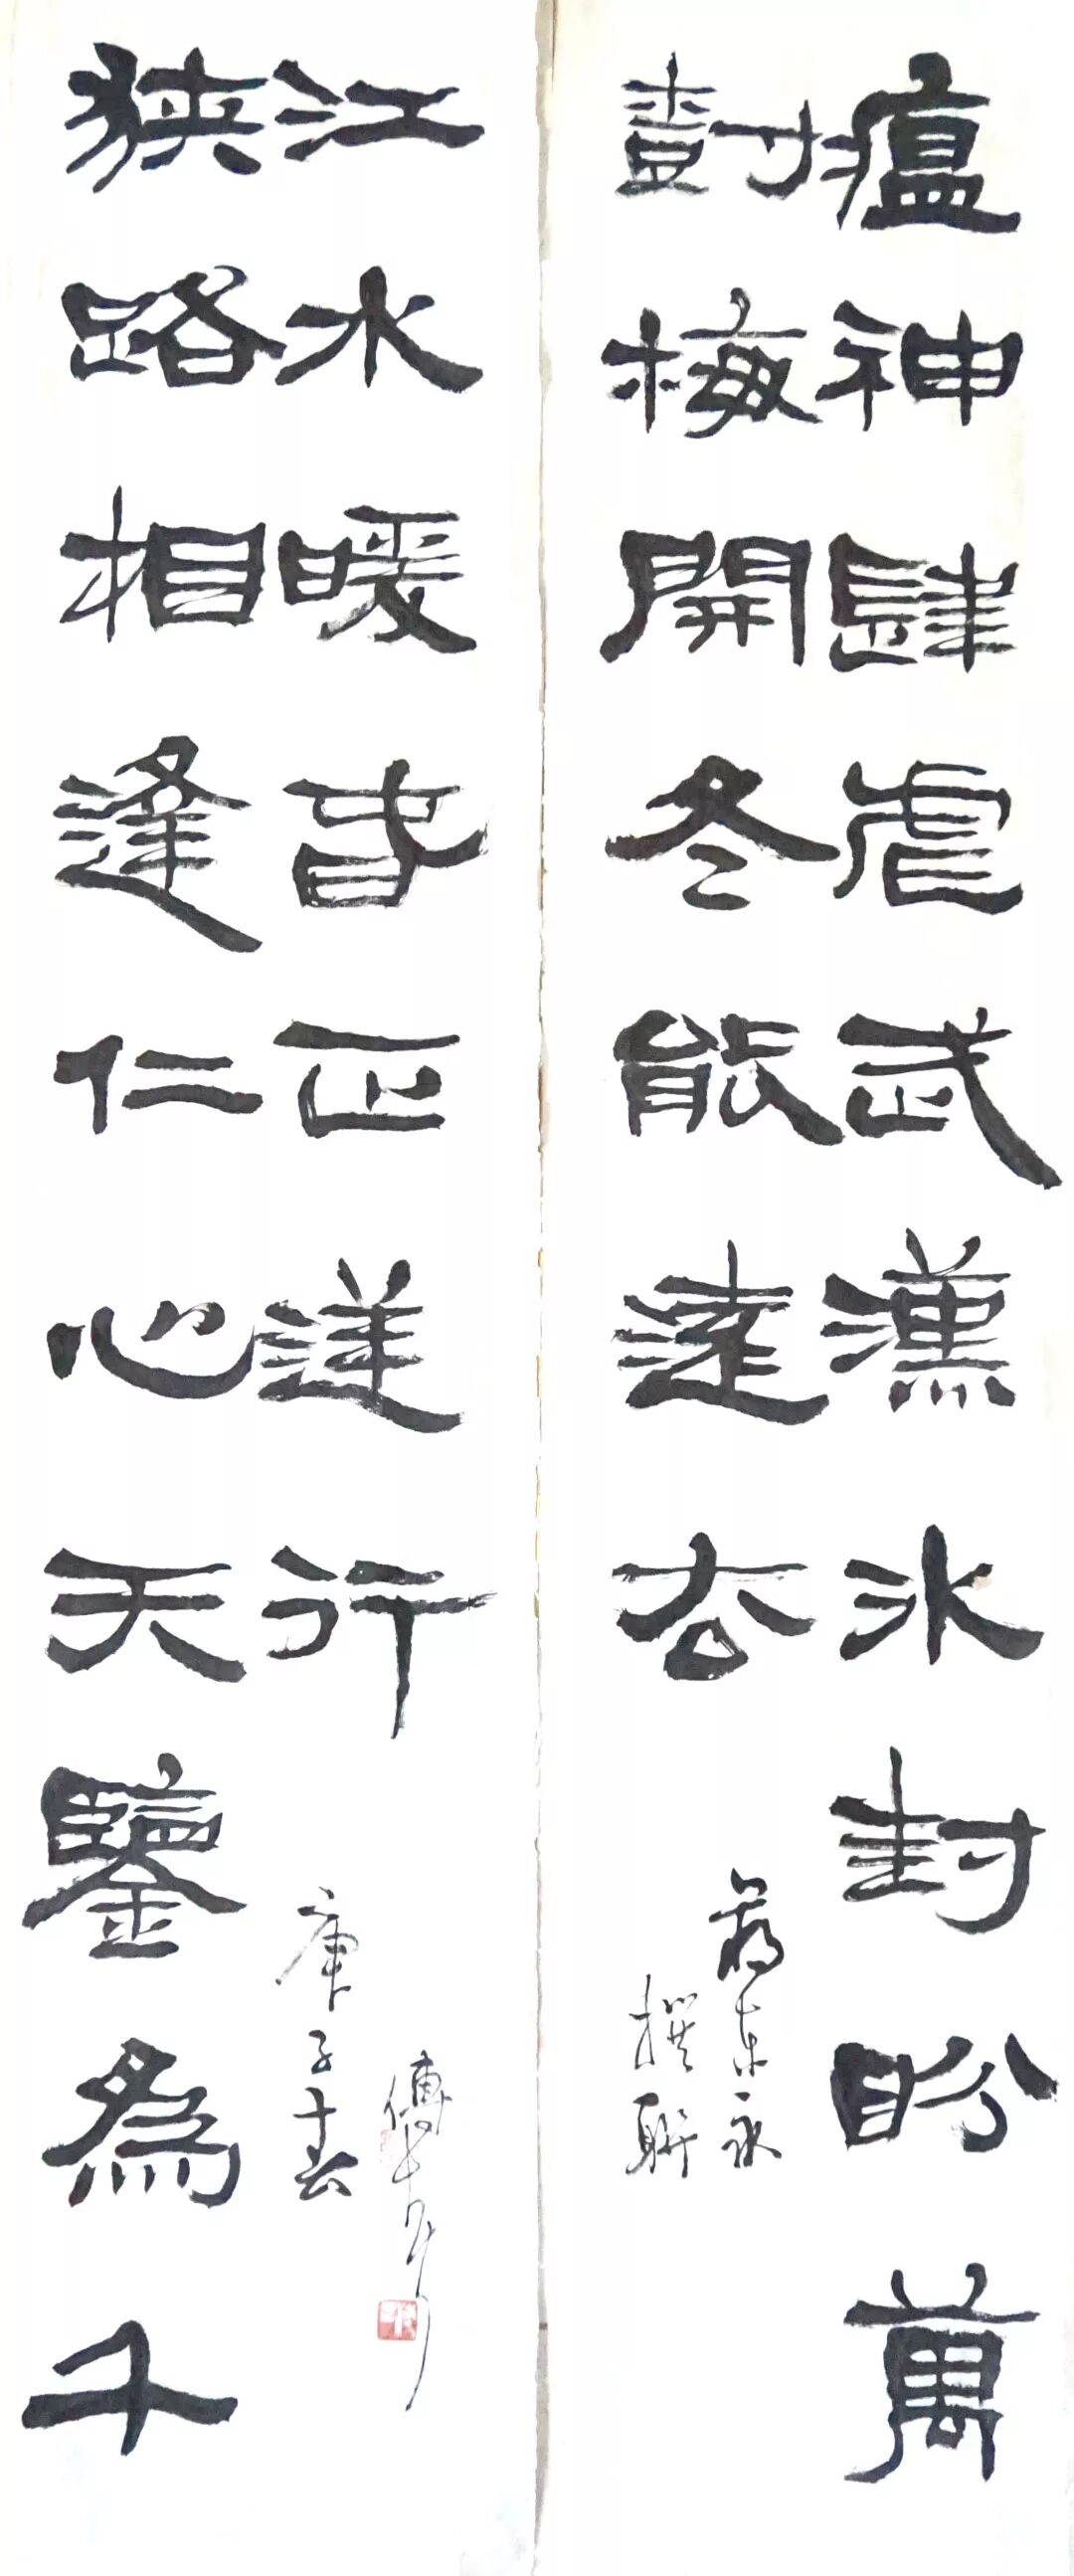 瘟神肆虐武漢冰封盼萬
樹梅開冬能遠去
東永
撰聯
狹路相逢仁心天鑒為千
江水暖春正逆行
庚子春